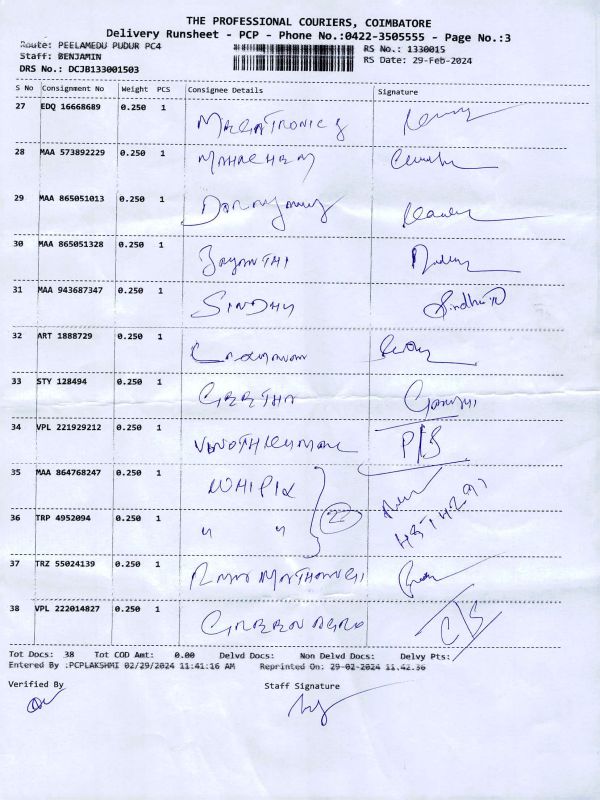 THE PROFESSIONAL COURIERS, COIMBATORE
Delivery Runsheet - PCP - Phone No.:0422-3505555 - Page No.:3
Route: PEELAMEDU PUDUR PC4
RS No.: 1330015
Staff: BENJAMIN
RS Date: 29-Feb-2024
DRS No.: DCJB133001503
S No Consignment No Weight PCS Consignee Details Signature
27 EDQ 16668689 0.250 1
28 MAA 573892229 0.250 1
29 MAA 865051013 0.250 1
30 MAA 865051328 0.250 1 JayanTHI
31 MAA 943687347 0.250 1 SINDHU Sindhu
32 ART 1888729 0.250 1
33 STY 128494 0.250 1 GEETHA
34 VPL 221929212 0.250 1 VINOTHKUMAR P/S
35 MAA 864768247 0.250 1 22
36 TRP 4952094 0.250 1 " "
37 TRZ 55024139 0.250 1
38 VPL 222014827 0.250 1 GREEN AGRO C/S
Tot Docs: 38 Tot COD Amt: 0.00 Delvd Docs: Non Delvd Docs: Delvy Pts:
Entered By :PCPLAKSHMI 02/29/2024 11:41:16 AM Reprinted On: 29-02-2024 11.42.36
Verified By Staff Signature